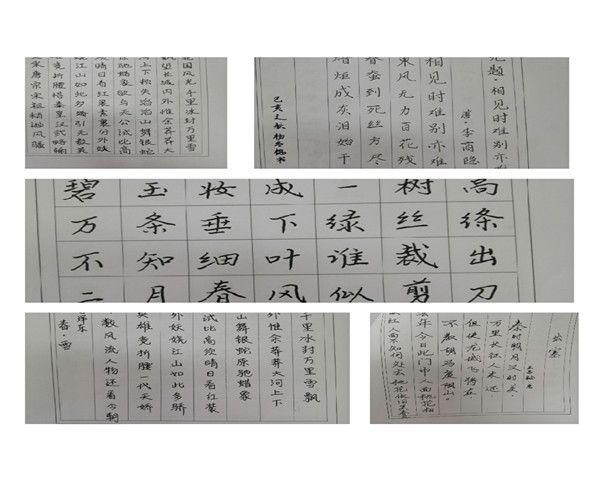 国风光千里冰封万里雪
望长城内外惟余莽莽大
河上下顿失滔滔山舞银蛇
原驰蜡象欲与天公试比高
须晴日看红装素裹分外妖
娆江山如此多娇引无数英
雄竞折腰惜秦皇汉武略输
文采唐宗宋祖稍逊风骚
无题·相见时难别亦
唐·李商隐
相见时难别亦难
东风无力百花残
春蚕到死丝方尽
炬成灰泪始干
己亥之秋
碧玉妆成一树高
万条垂下绿丝绦
不知细叶谁裁出
二月春风似剪刀
千里冰封万里雪飘
外惟余莽莽大河上下
山舞银蛇原驰蜡象
试比高须晴日看红装
外妖娆江山如此多骄
英雄竞折腰一代天骄
数风流人物还看今朝
春·雪
出塞
秦时明月汉时关
万里长征人未还
但使龙城飞将在
不教胡马度阴山
去年今日此门中人面桃花相
映红人面不知何处去桃花依旧笑春